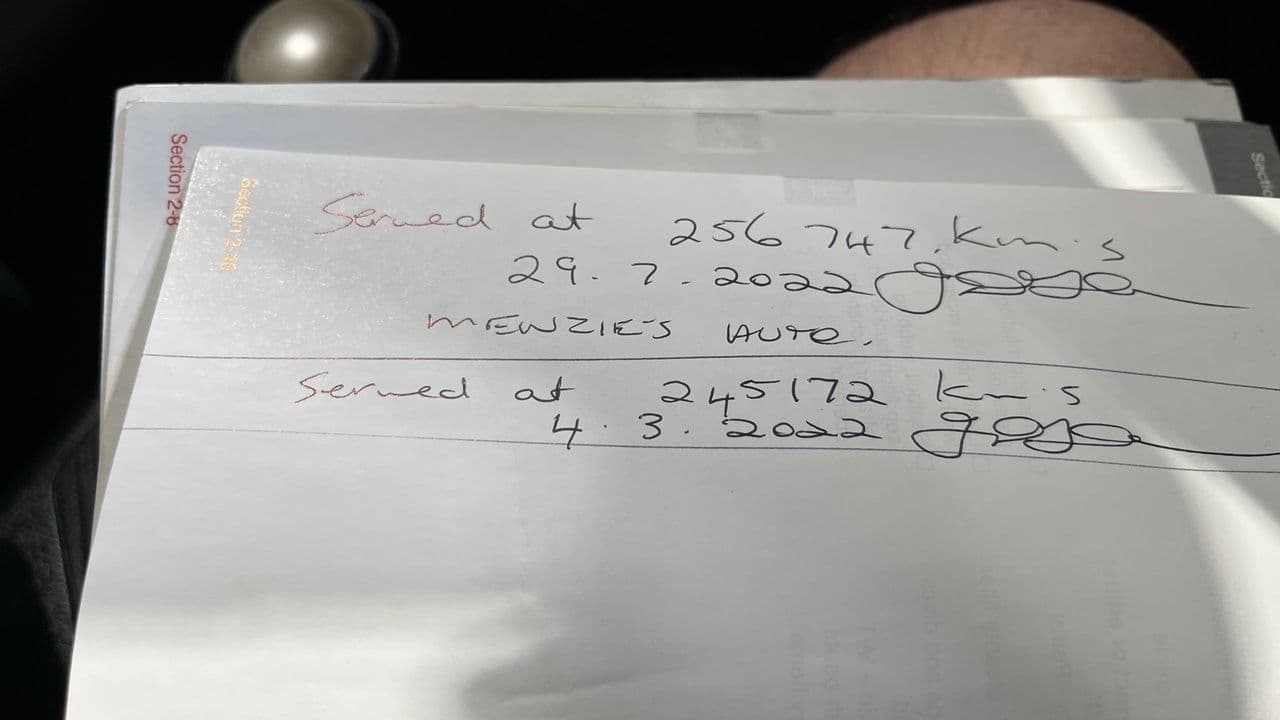 Section 2-8
Section 2-
Sectio
Serviced at 256 747. Km's
29. 7. 2022
MENZIE'S AUTO.
Serviced at 245172 km's
4. 3. 2022